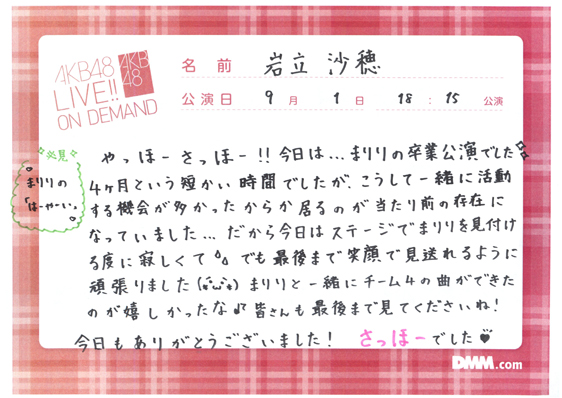 AKB48
LIVE!!
ON DEMAND
AKB
48
名前 岩立 沙穂
公演日 9月 1日 18:15 公演
必見
まりりの
「はーやーい。」
やっほーさっほー!!今日は...まりりの卒業公演でした
4ヶ月という短かい時間でしたが、こうして一緒に活動
する機会が多かったからか居るのが当たり前の存在に
なっていました...だから今日はステージでまりりを見付け
る度に寂しくて でも最後まで笑顔で見送れるように
頑張りました(*´ω`*)まりりと一緒にチーム4の曲ができた
のが嬉しかったな♪皆さんも最後まで見てくださいね!
今日もありがとうございました! さっほーでした♥
DMM.com